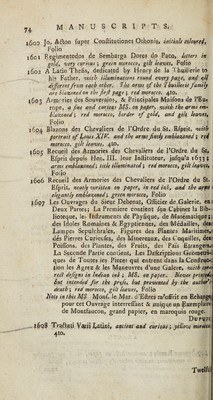 74 MANUSCRIPTS.
1600 Jo. Acton super Constitutiones Othonis, initials coloured, Folio
1601 Regimentodos de Sembarga Dores do Paco, letters in gold, very curious; green morocco, gilt leaves, Folio
1602 A Latin Thesis, dedicated by Henry de la Thuillerie to
his Father, with illuminations round every page, and all
different from each other. The arms of the Thuillerie family
are blazoned in the first page; red morocco. 4to.
1603 Armories des Souverains, & Principales Maisons de l'Europe, a fine and curious MS. on paper, with the arms emblazoned; red morocco, border of gold, and gilt leaves, Folio
1604 Blazons des Chevaliers de l'Ordre du St. Esprit, with
portrait of Louis XIV. and the arms finely emblazoned; red
morocco, gilt leaves. 4to.
1605 Recueil des Armories des Chevaliers de l'Ordre du St.
Esprit depuis Hen. III. leur Instituteur, jusqu'a 1651;
arms emblazoned; title illuminated; red morocco, gilt leaves,
Folio
1606 Recueil des Armories des Chevaliers de l'Ordre du St.
Esprit, neatly written on paper, in red ink, and the arms
elegantly emblazoned; green morocco, Folio
1607 Les Ouvrages du Sieur Dehemat, Officier de Galerie, en
Deux Partes: La Premiere contient son Cabinet la Biblioteque, les Instrumens de Physique, de Matématiques;
des Idoles Romaines & Egyptiennes, des Médailles, des
Lampes Sepulchrales, Figures des Plantes Maritimes,
des Pierres Curieuses, des Mineraux, des Coquilles, des
Poissons, des Plantes, des Fruits, des Pais Etrangers.
La Seconde Partie contient, Les Descriptions Geometriques de Toutes les Pieces qui entrent dans la Construction les Agrez & les Manœuvres d'une Galere, with correct designs in Indian ink; MS. on paper. Never printed,
but intended for the press, but prevented by the author's
death; red morocco, gilt leaves, Folio
Note in this MS Mons. le Mar. d'Estrez m'offrit en Echange
pour cet Ouvrage interressant & unique un Exemplaire
de Montfaucon, grand papier, en maroquin rouge.
1608 Tractati Varii Latini, ancient and curious; yellow morocco
4to.